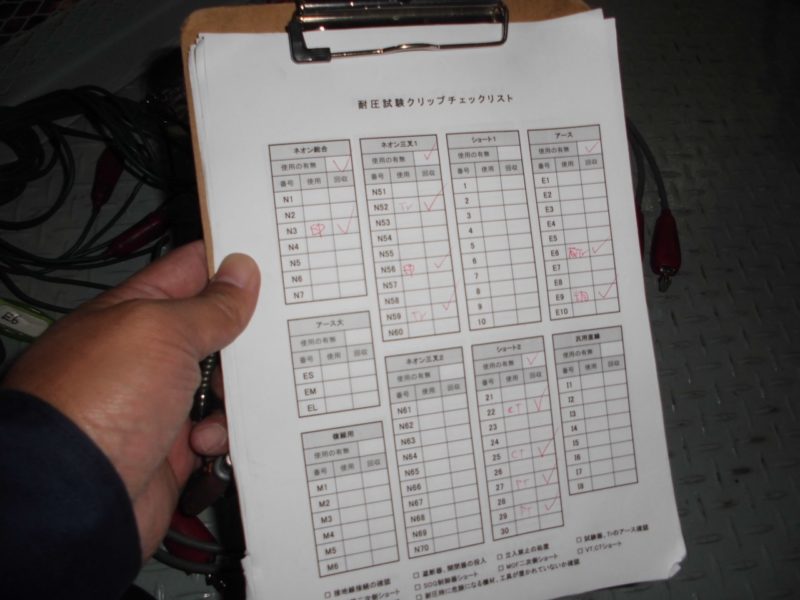 耐圧試験クリップチェックリスト
ネオン総合
使用の有無 ✓
番号 使用 回収
N1
N2
N3 印 ✓
N4
N5
N6
N7
ネオン三叉1
使用の有無 ✓
番号 使用 回収
N51
N52 Tr ✓
N53
N54
N55
N56 印 ✓
N57
N58
N59 Tr ✓
N60
ショート1
使用の有無
番号 使用 回収
1
2
3
4
5
6
7
8
9
10
アース
使用の有無 ✓
番号 使用 回収
E1
E2
E3
E4
E5
E6 ✓
E7
E8
E9 ✓
E10
アース大
使用の有無
番号 使用 回収
ES
EM
EL
ネオン三叉2
使用の有無
番号 使用 回収
N61
N62
N63
N64
N65
N66
N67
N68
N69
N70
ショート2
使用の有無 ✓
番号 使用 回収
21
22 CT ✓
23
24
25 CT ✓
26
27 PT ✓
28
29 PT ✓
30
汎用直線
使用の有無
番号 使用 回収
11
12
13
14
15
16
17
18
復線用
使用の有無
番号 使用 回収
M1
M2
M3
M4
M5
M6
□ 接地線接続の確認
□ 遮断器、開閉器の投入
□ 立入禁止の処置
□ 試験器、Trのアース確認
次側ショート
□ SOG制御器ショート
□ MOF二次側ショート
□ VT,CTショート
□ 耐圧時に危険になる機材、工具が置かれていないか確認
E6